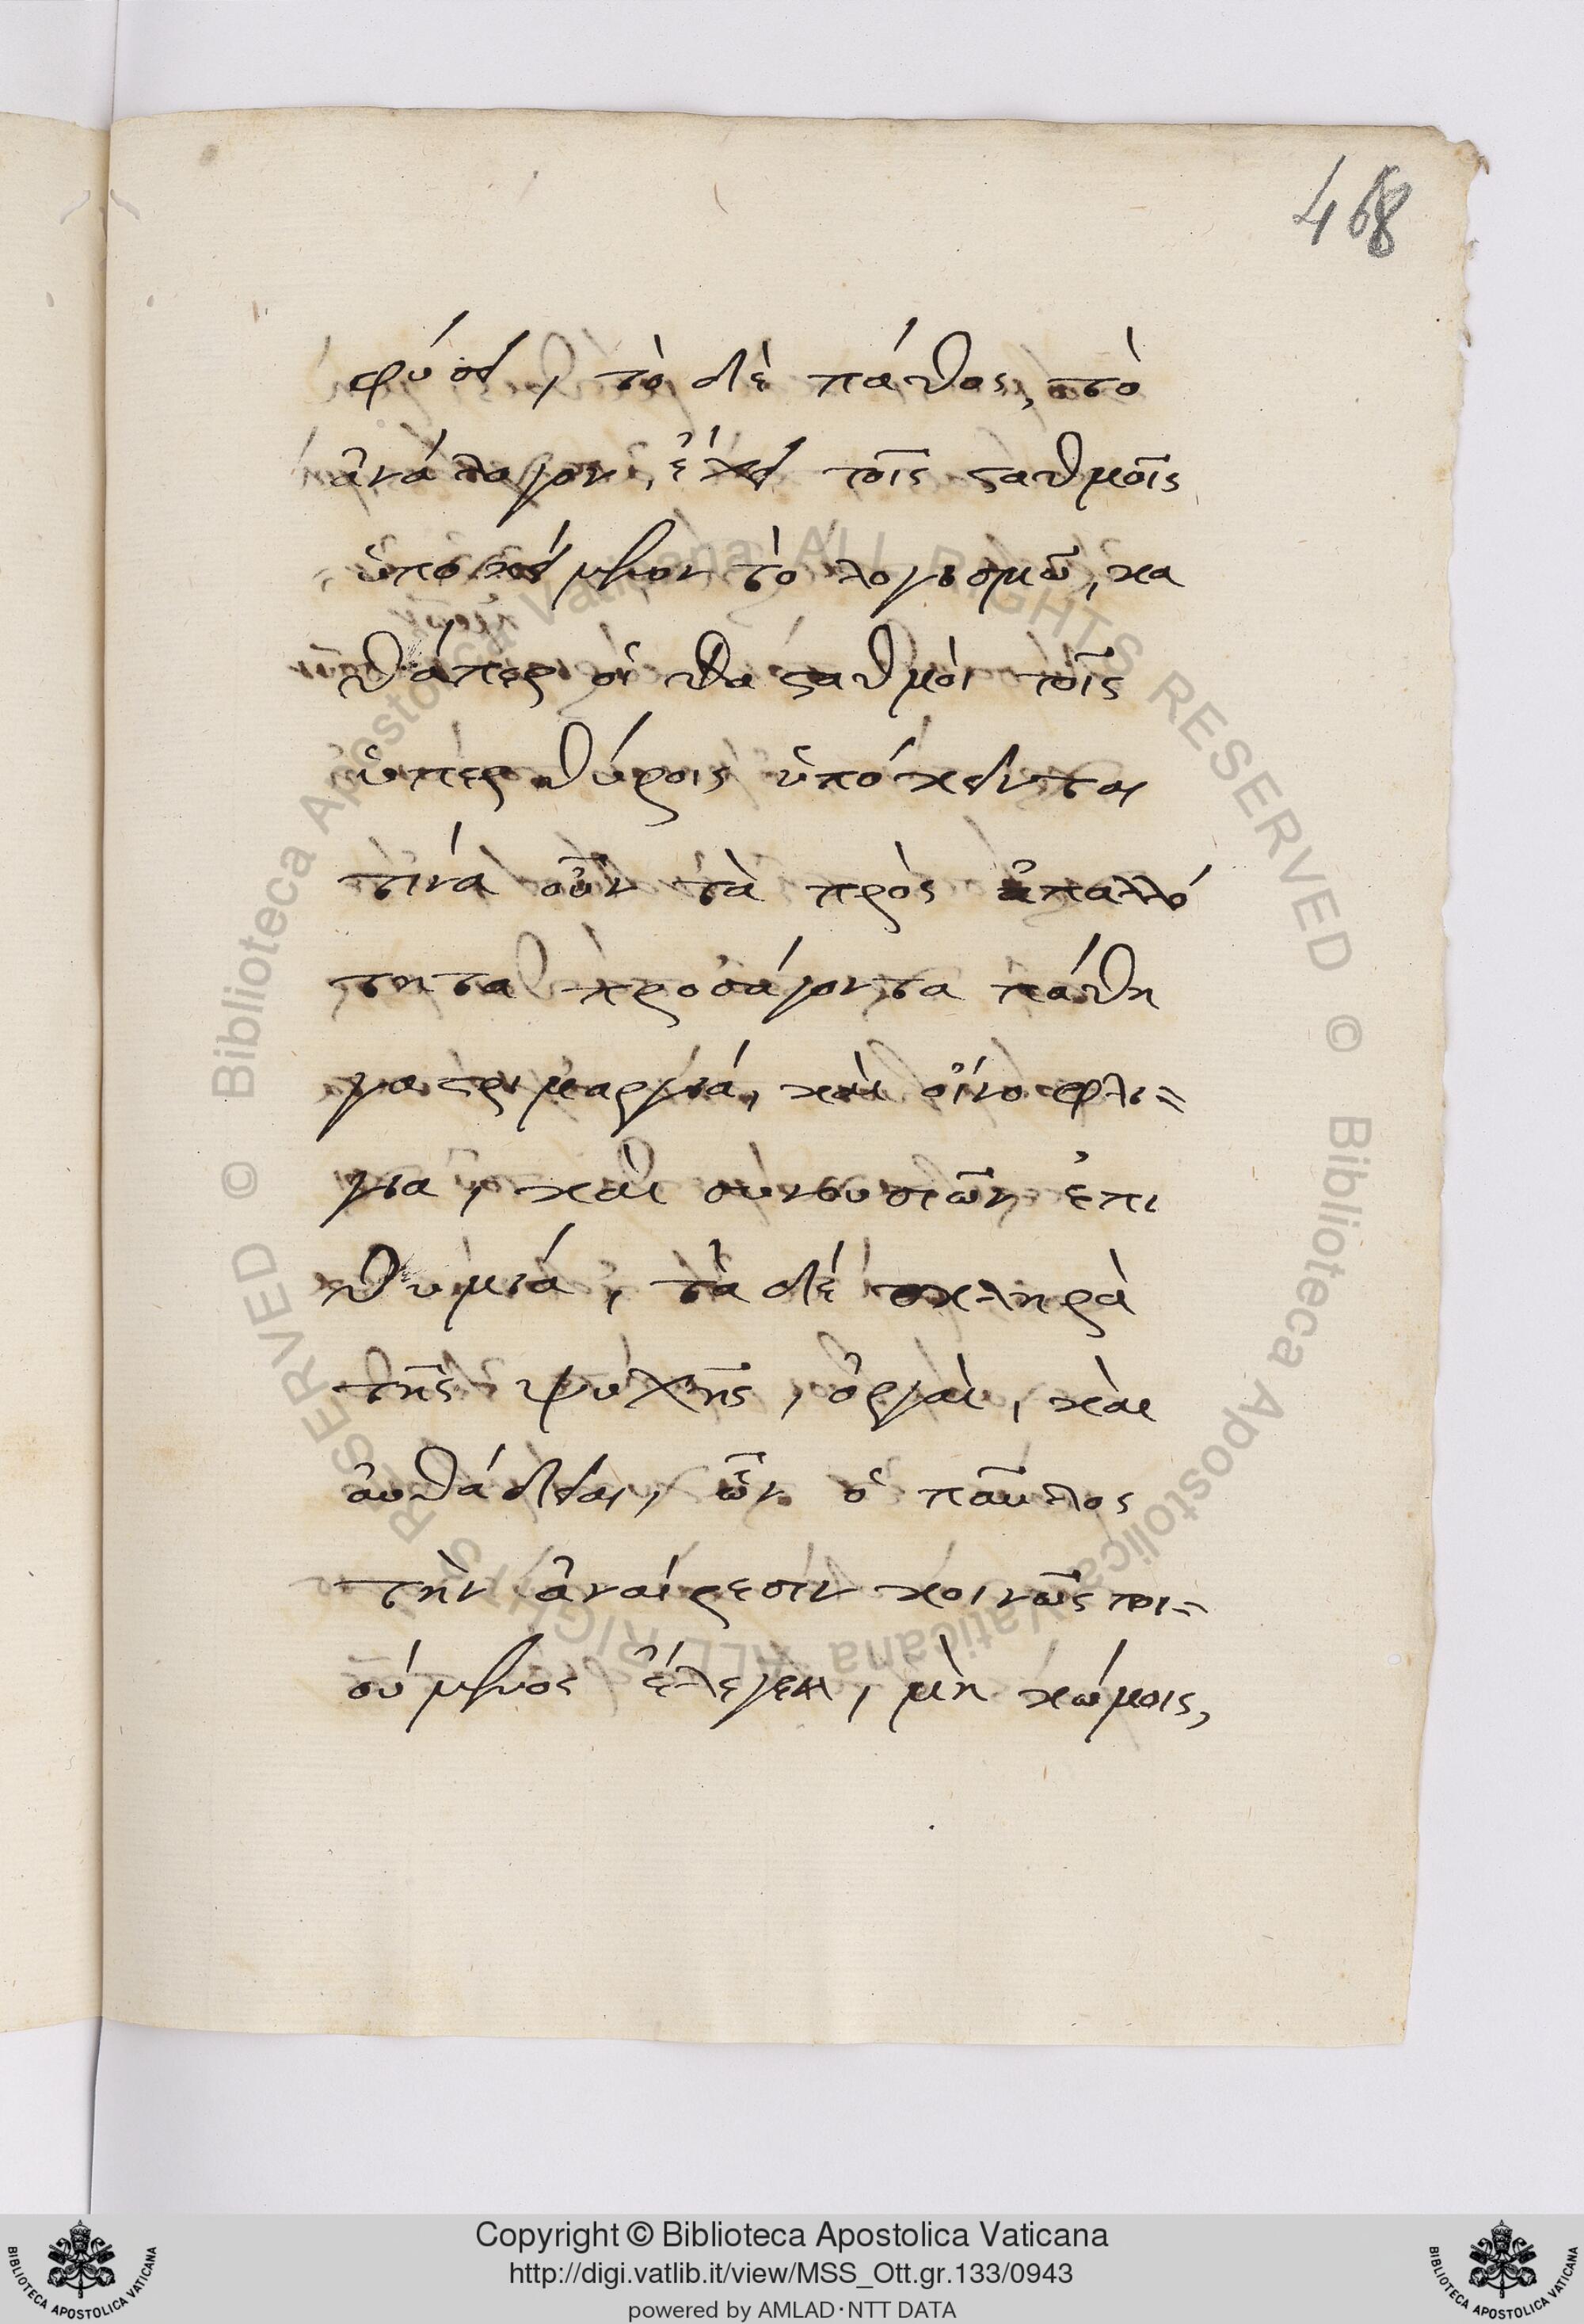 468
φύσει, τὸ δὲ πάθος, τὸ
ἀνάλογον, ἔχει τοῖς σταθμοῖς
ὑποκείμενον τὸ λογισμῶ, κα
θάπερ οἱ σταθμοὶ τοῖς
ὑπερθύροις ὑπόκεινται
τινὰ οὖν τὰ πρὸς ἁπαλό
τητα προσάγοντα πάθη
γαστριμαργιά, καὶ οἰνοφλι=
για, καὶ συνουσιῶν ἐπι
θυμιά, τὰ δὲ σκληρὰ
τῆς ψυχῆς, ὀργαὶ, καὶ
αὐθάδειαι, ὧν ὁ παῦλος
τὴν ἀναίρεσιν κοινῶς ποι=
ούμενος ἔλεγεν, μὴ κώμοις,
Copyright © Biblioteca Apostolica Vaticana
http://digi.vatlib.it/view/MSS_Ott.gr.133/0943
powered by AMLAD·NTT DATA
BIBLIOTECA APOSTOLICA VATICANA
BIBLIOTECA APOSTOLICA VATICANA
© Biblioteca Apostolica Vaticana ALL RIGHTS RESERVED
© Biblioteca Apostolica Vaticana ALL RIGHTS RESERVED